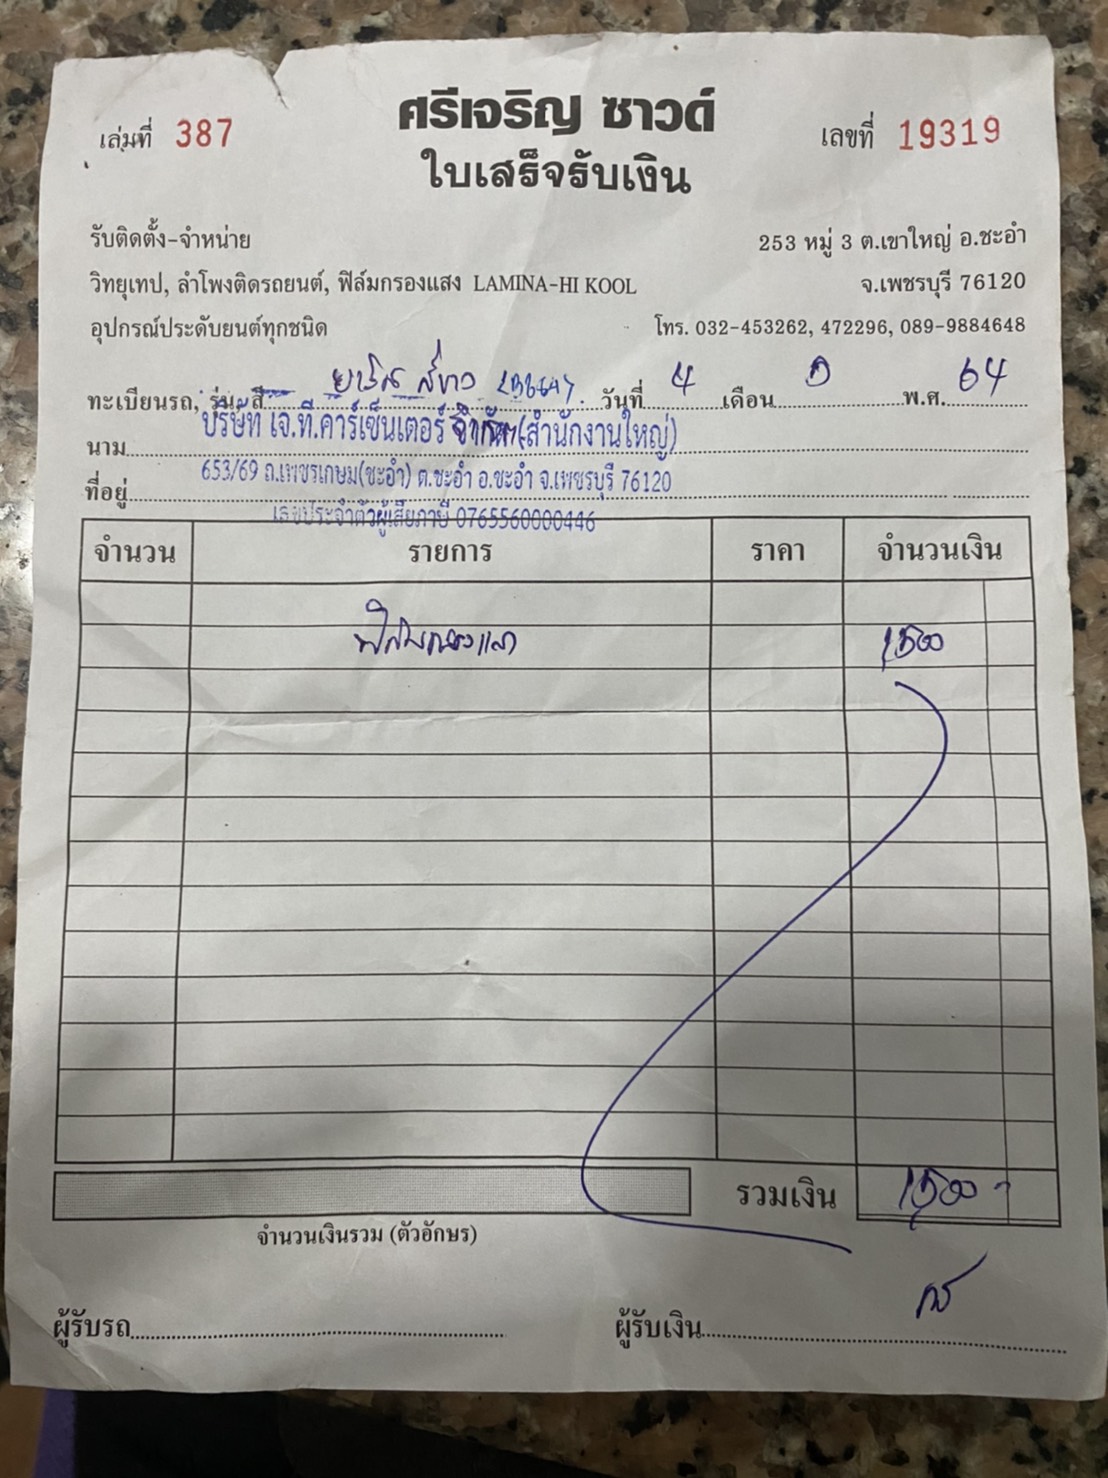 ศรีเจริญ ซาวด์
เล่มที่ 387
เลขที่ 19319
ใบเสร็จรับเงิน
รับติดตั้ง-จำหน่าย
253 หมู่ 3 ต.เขาใหญ่ อ.ชะอำ
วิทยุเทป, ลำโพงติดรถยนต์, ฟิล์มกรองแสง LAMINA-HI KOOL
จ.เพชรบุรี 76120
อุปกรณ์ประดับยนต์ทุกชนิด
โทร. 032-453262, 472296, 089-9884648
ทะเบียนรถ, รุ่น, สี วันที่ 4 เดือน พ.ศ. 64
บริษัท เจ.ที.คาร์เซ็นเตอร์ จำกัด (สำนักงานใหญ่)
นาม
653/69 ถ.เพชรเกษม(ชะอำ) ต.ชะอำ อ.ชะอำ จ.เพชรบุรี 76120
ที่อยู่
เลขประจำตัวผู้เสียภาษี 0765560000446
จำนวน รายการ ราคา จำนวนเงิน
ฟิล์มกรองแสง 1,500
รวมเงิน 1,500 -
จำนวนเงินรวม (ตัวอักษร)
ผู้รับรถ ผู้รับเงิน